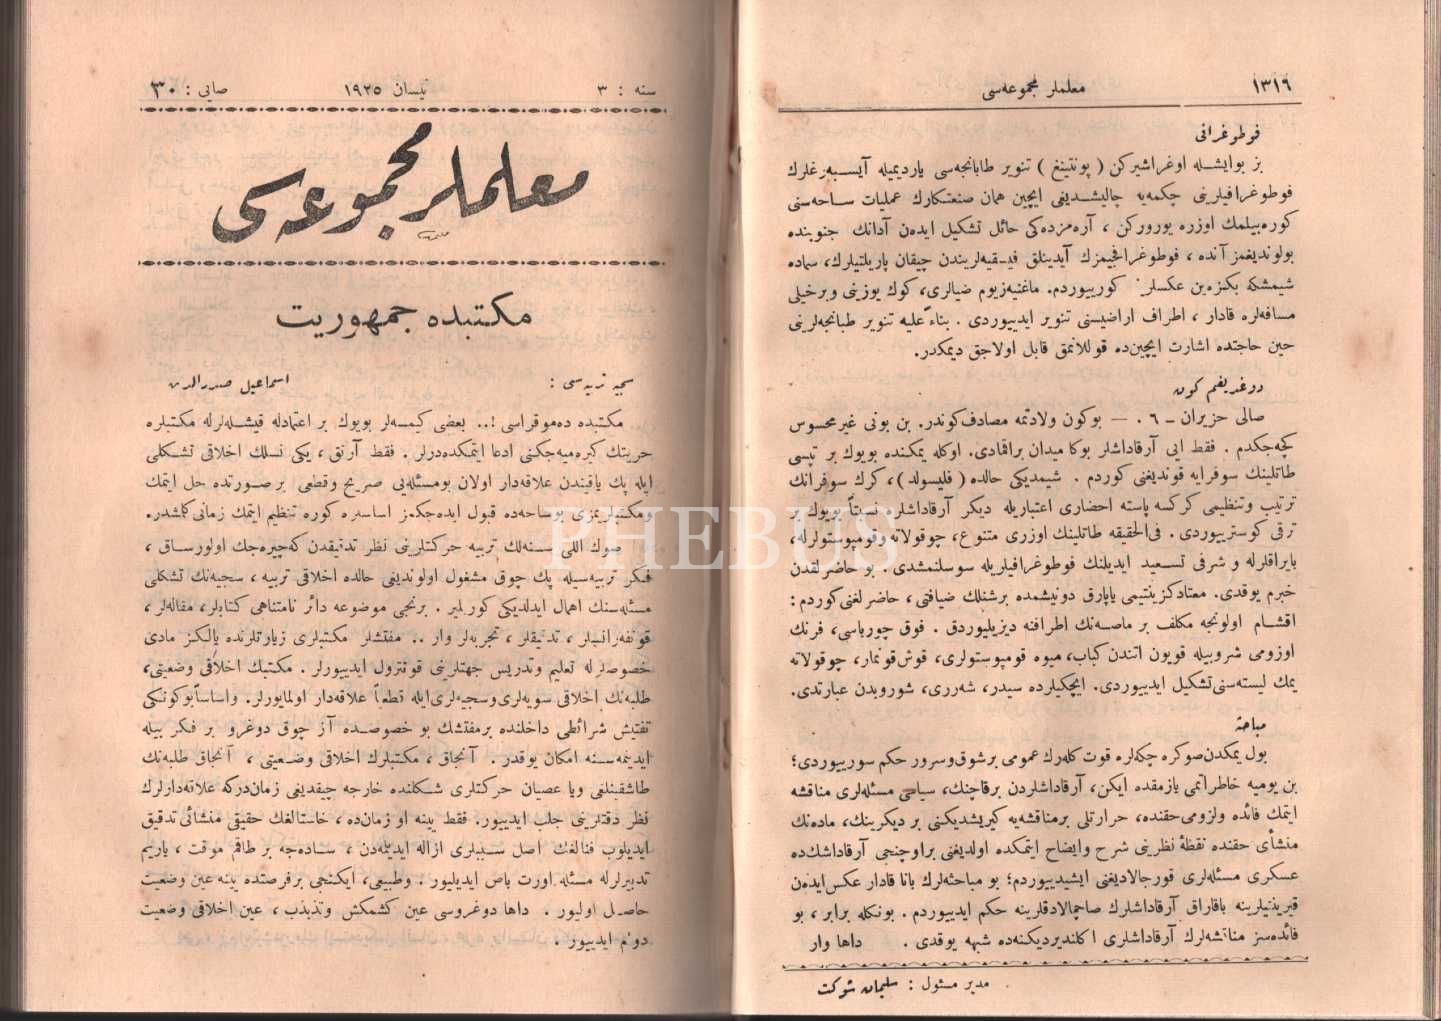 ١٣١٦
معلملر مجموعه‌سی
فوطوغرافی
بز بوایشله اوغراشیرکن ( پونتینغ ) تنویر طابانجه‌سی یاردیمیله آیسبه‌رغلرك
فوطوغرافیلرینی چکمه‌یه چالیشدیغی ایچین همان صنعتکارك عملیات ساحه‌سنی
کوره‌بیلمك اوزره یورورکن ، آره‌مزده‌کی حائل تشکیل ایده‌ن آدانك جنوبنده
بولوندیغمز آنده ، فوطوغرافجیمزك آیدینلق فیشقیه‌لریندن چیقان پاریلتیلرك، سماده
شیمشکه بکزه‌ین عکسلر کورییوردم. ماغنیه‌زیوم ضیالری، کوك یوزینی وبرخیلی
مسافه‌لره قادار ، اطراف اراضیسنی تنویر ایدییوردی . بناءً علیه تنویر طبانجه‌لرینی
حین حاجتده اشارت ایچین‌ده قوللانمق قابل اولاجق دیمکدر.
دوغدیغم کون
صالی حزیران ـ ٦ . — بوکون ولادتمه مصادف کوندر. بن بونی غیرمحسوس
کچه‌جکدم . فقط ایی آرقداشلر بوکا میدان براقمادی. اوکله یمکنده بویوك بر تپسی
طاتلینك سوفرایه قوندیغنی کوردم . شیمدیکی حالده ( فلیسولد )، کرك سوفرانك
ترتیب وتنظیمی کرکسه پاسته احضاری اعتباریله دیکر آرقاداشلره نسبتاً بویوك بر
ترقی کوسترییوردی . فی‌الحقیقه طاتلینك اوزری متنوع ، چوقولاته وقومپوستولرله،
بایراقلرله و شرفی تسعید ایدیلنك فوطوغرافیلریله سوسلنمشدی . بو حاضرلقدن
خبرم یوقدی. معتاد کزینتیمی یاپارق دونیشمده برشنلك ضیافتی ، حاضرلغنی کوردم :
اقشام اولونجه مکلف بر ماصه‌نك اطرافنه دیزیلیوردق . فوق چورباسی، فرنك
اوزومی شروبیله قویون اتندن کباب، میوه قومپوستولری، قوش‌قونمار، چوقولاته
یمك لیسته‌سنی تشکیل ایدییوردی. ایچکیلرده سیدر، شه‌رری، شوروبدن عبارتدی.
مباحثه
بول یمکدن صوکره چکه‌لره قوت کله‌رك عمومی برشوق وسرور حکم سورییوردی؛
بن یومیه خاطراتمی یازمقده ایکن، آرقاداشلردن برقاچنك، سیاسی مسئله‌لری مناقشه
ایتمك فائده ولزومی حقنده، حرارتلی برمناقشه‌یه کیریشدیکنی بر دیکرینك، ماده‌نك
منشأی حقنده نقطهٔ نظرینی شرح وایضاح ایتمکده اولدیغنی براوچنجی آرقاداشك‌ده
عسکری مسئله‌لری قورجالادیغنی ایشیدییوردم؛ بو مباحثه‌لرك بانا قادار عکس‌ایده‌ن
قیریندیلرینه باقاراق آرقاداشلرك صاچمالادقلرینه حکم ایدییوردم . بونکله برابر ، بو
فائده‌سز مناقشه‌لرك آرقاداشلری اکلندیردیکنه‌ده شبهه یوقدی . داها وار
مدیر مسئول : سلیمان شوکت
سنه : ٣
نیسان ١٩٢٥
صایی : ٣٠
معلملر مجموعه‌سی
مکتبده جمهوریت
سجیه تربیه‌سی :
اسماعیل صدرالدین
مکتبده ده‌موقراسی !.. بعضی کیمسه‌لر بویوك بر اعتمادله قیشله‌لرله مکتبلره
حریتك کیره‌میه‌جکنی ادعا ایتمکده‌درلر . فقط آرتق ، یکی نسلك اخلاقی تشکلی
ایله پك یاقیندن علاقه‌دار اولان بومسئله‌یی صریح وقطعی برصورتده حل ایتمك
ومکتبلریمزی بوساحه‌ده قبول ایده‌جکمز اساسلره کوره تنظیم ایتمك زمانی کلمشدر.
صوك اللی سنه‌لك تربیه حرکتلرینی نظر تدقیقدن کچیره‌جك اولورساق ،
فکر تربیه‌سیله پك چوق مشغول اولوندیغی حالده اخلاقی تربیه ، سجیه‌نك تشکلی
مسئله‌سنك اهمال ایدلدیکی کورلیر . برنجی موضوعه دائر نامتناهی کتابلر، مقاله‌لر،
قونفه‌رانسلر ، تدقیقلر ، تجربه‌لر وار .. مفتشلر مکتبلری زیارتلرنده یالکز مادی
خصوصلرله تعلیم وتدریس جهتلرینی قونترول ایدییورلر . مکتبك اخلاقی وضعیتی،
طلبه‌نك اخلاقی سویه‌لری وسجیه‌لری‌ایله قطعاً علاقه‌دار اولمایورلر. واساساً بوکونکی
تفتیش شرائطی داخلنده برمفتشك بو خصوصده آز چوق دوغرو بر فکر بیله
ایدینمه‌سنه امکان یوقدر . آنجاق ، مکتبلرك اخلاقی وضعیتی ، آنجاق طلبه‌نك
طاشقینلغی ویا عصیان حرکتلری شکلنده خارجه چیقدیغی زمان‌درکه علاقه‌دارلرك
نظر دقتلرینی جلب ایدییور. فقط یینه او زمان‌ده، خاستالغك حقیقی منشائی تدقیق
ایدیلوب فنالغك اصل سببلری ازاله ایدیله‌دن ، ساده‌جه بر طاقم موقت ، یاریم
تدبیرلرله مسئله اورت باص ایدیلیور . وطبیعی، ایکنجی برفرصتده یینه عین وضعیت
حاصل اولیور . داها دوغروسی عین کشمکش وتذبذب ، عین اخلاقی وضعیت
دوام ایدییور .
PHEBUS